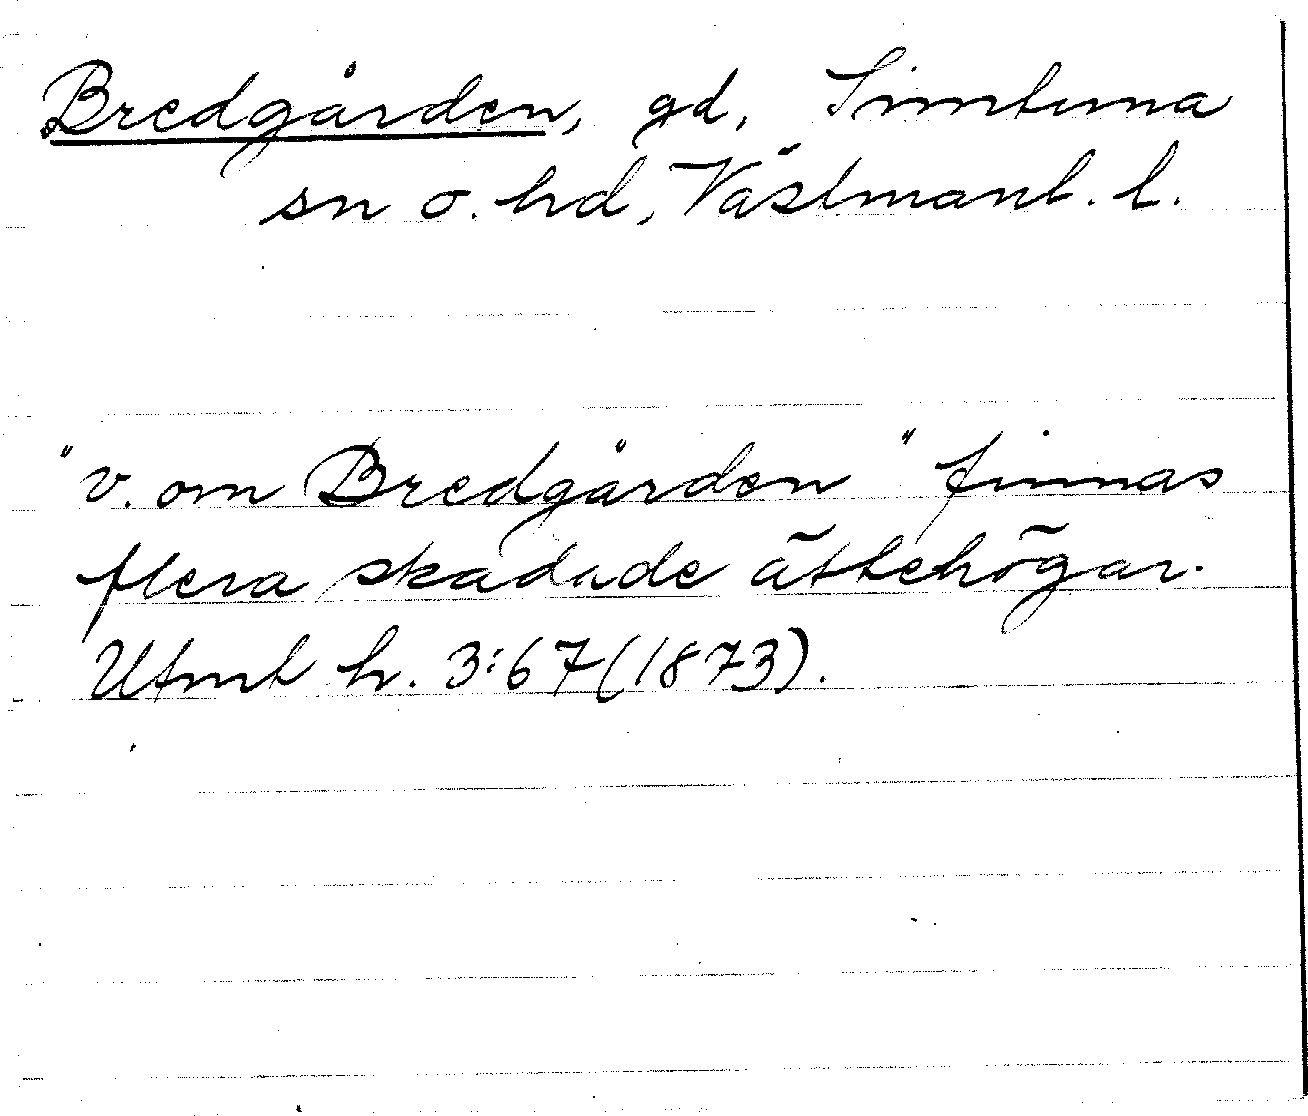 Bredgården, gd, Simtuna
sn o. hd, Västmanl. l.
"v. om Bredgården" finnas
flera skadade ättehögar.
Ufmt h. 3:67 (1873).